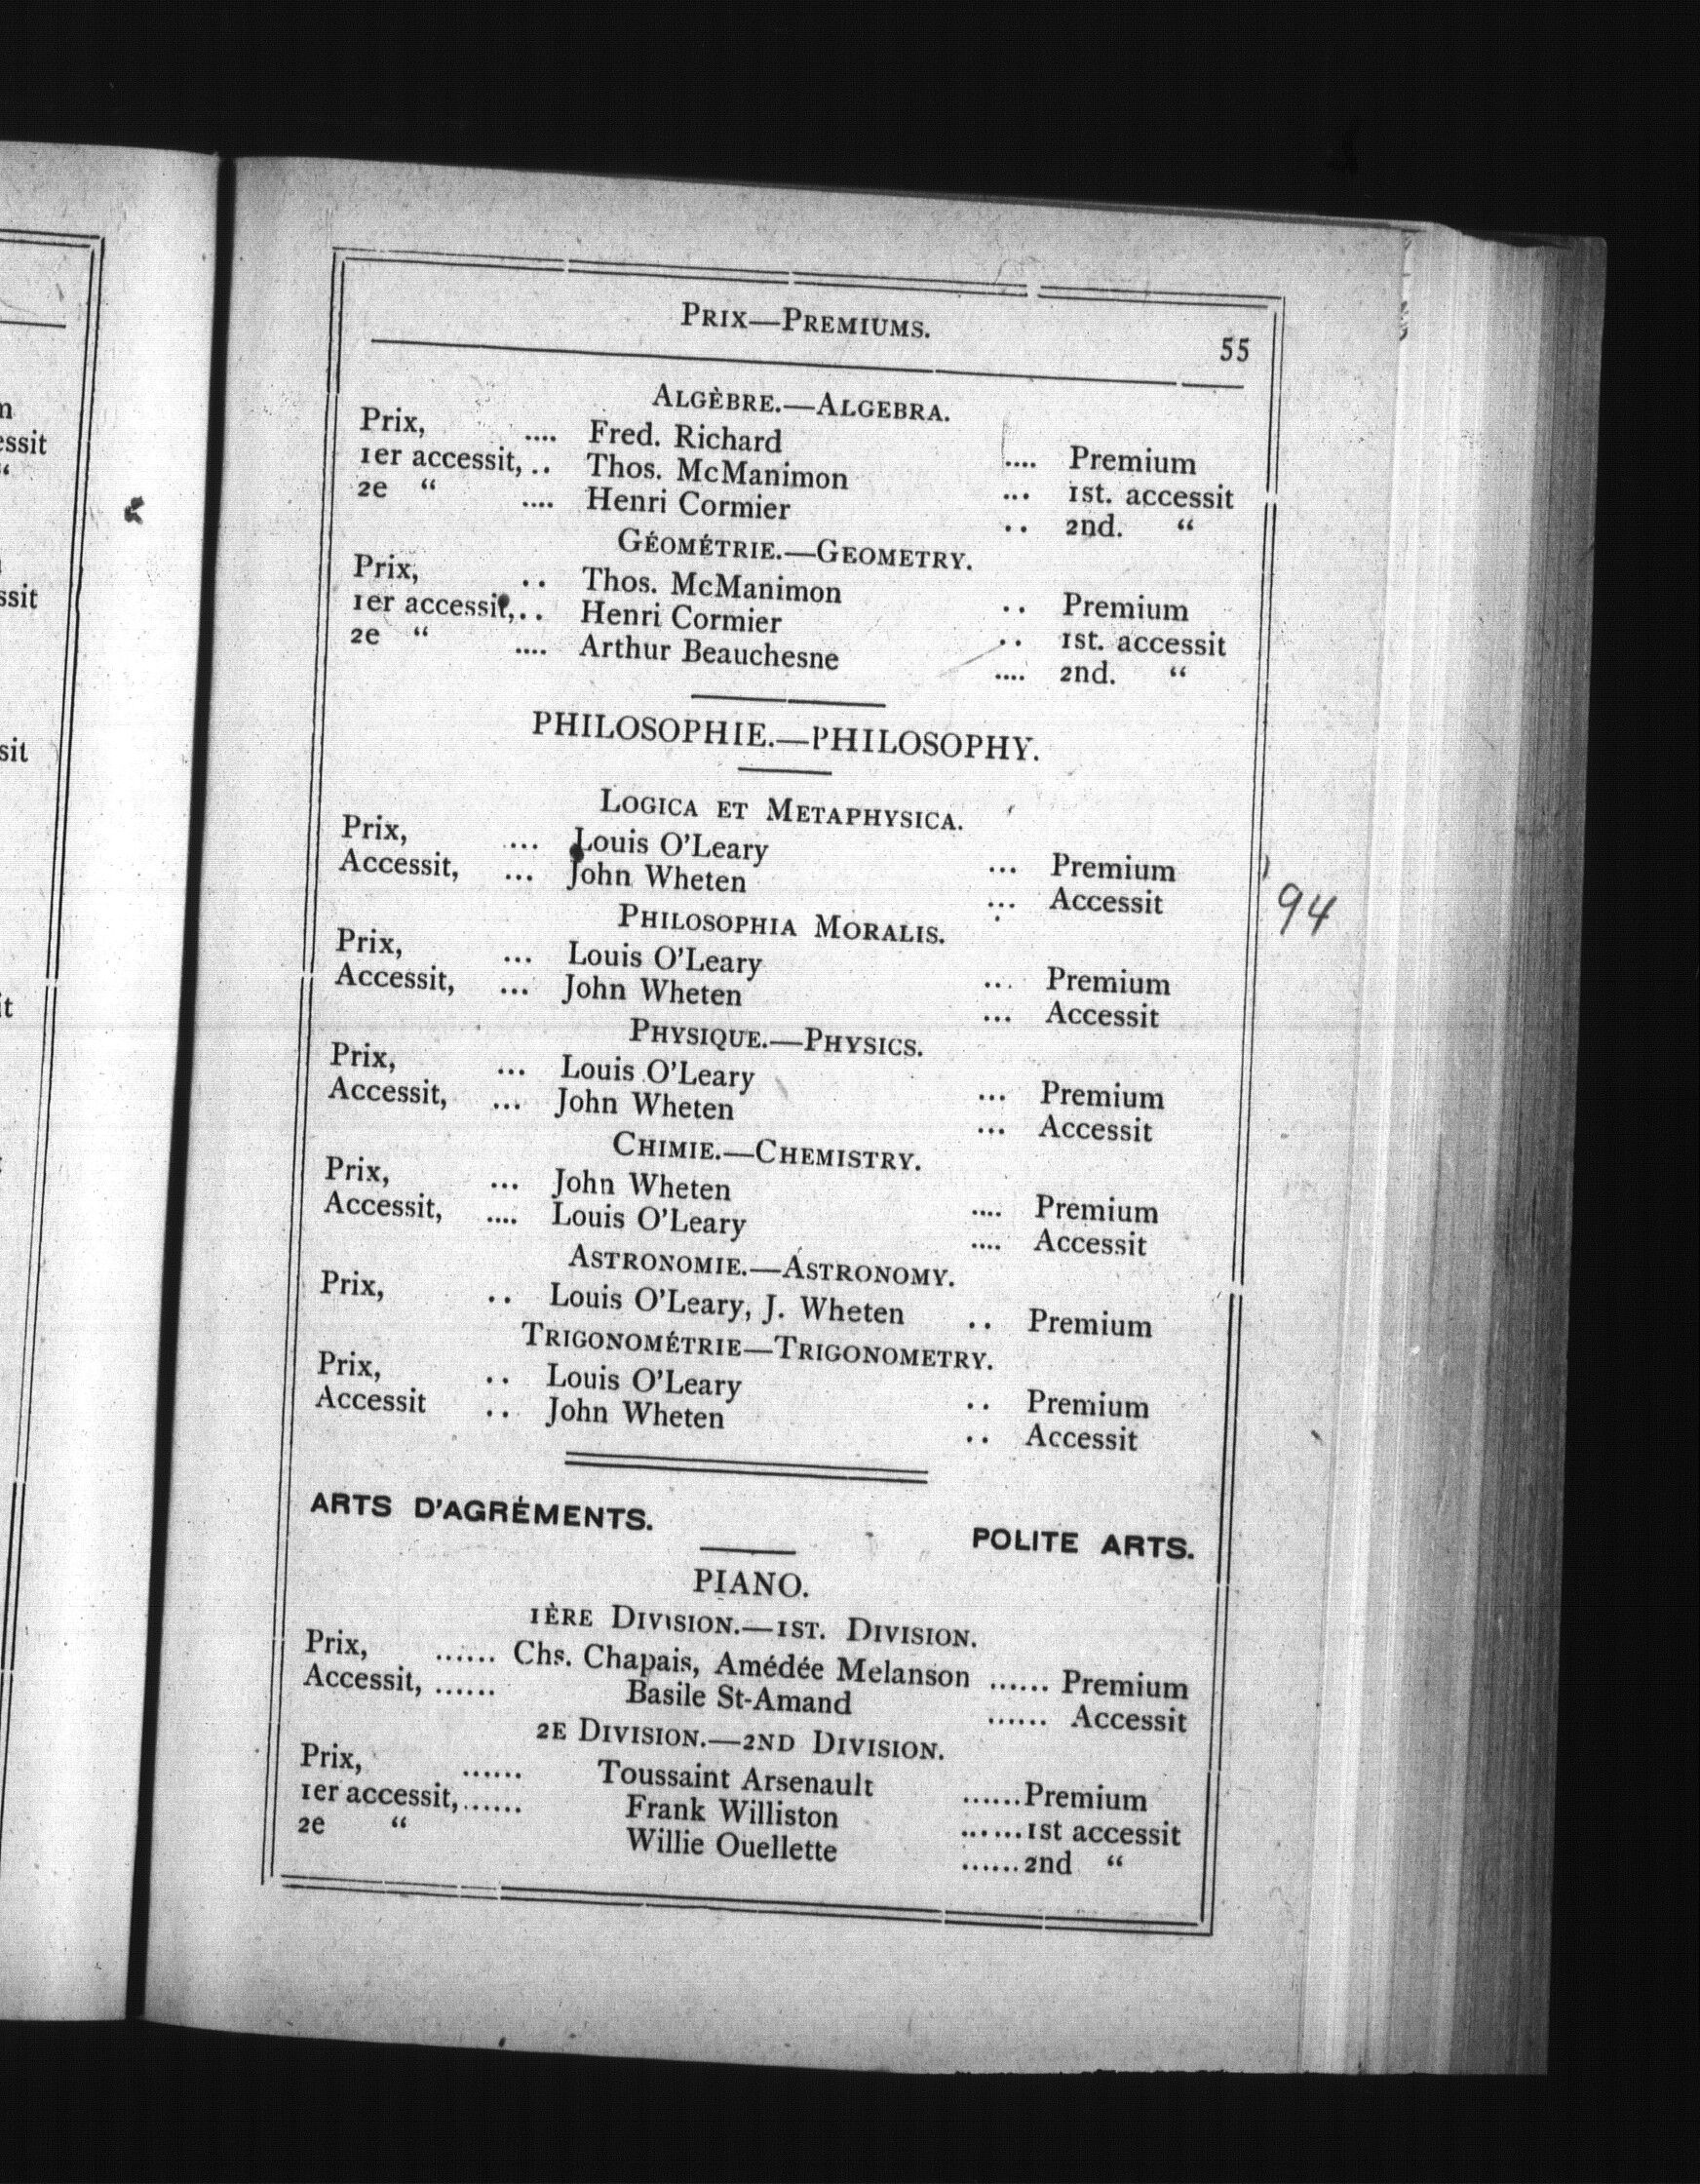 PRIX—PREMIUMS.
55
ALGÈBRE.—ALGEBRA.
Prix, .... Fred. Richard .... Premium
1er accessit, .. Thos. McManimon ... 1st. accessit
2e “ .... Henri Cormier .. 2nd. “
GÉOMÉTRIE.—GEOMETRY.
Prix, .. Thos. McManimon .. Premium
1er accessit, .. Henri Cormier .. 1st. accessit
2e “ .... Arthur Beauchesne .... 2nd. “
PHILOSOPHIE.—PHILOSOPHY.
LOGICA ET METAPHYSICA.
Prix, ... Louis O'Leary ... Premium
Accessit, ... John Wheten ... Accessit
94
PHILOSOPHIA MORALIS.
Prix, ... Louis O'Leary ... Premium
Accessit, ... John Wheten ... Accessit
PHYSIQUE.—PHYSICS.
Prix, ... Louis O'Leary ... Premium
Accessit, ... John Wheten ... Accessit
CHIMIE.—CHEMISTRY.
Prix, ... John Wheten .... Premium
Accessit, .... Louis O'Leary .... Accessit
ASTRONOMIE.—ASTRONOMY.
Prix, .. Louis O'Leary, J. Wheten .. Premium
TRIGONOMÉTRIE—TRIGONOMETRY.
Prix, .. Louis O'Leary .. Premium
Accessit .. John Wheten .. Accessit
ARTS D'AGRÉMENTS. POLITE ARTS.
PIANO.
1ÈRE DIVISION.—1ST. DIVISION.
Prix, ...... Chs. Chapais, Amédée Melanson ...... Premium
Accessit, ...... Basile St-Amand ...... Accessit
2E DIVISION.—2ND DIVISION.
Prix, ...... Toussaint Arsenault ......Premium
1er accessit,...... Frank Williston ......1st accessit
2e “ Willie Ouellette ......2nd “